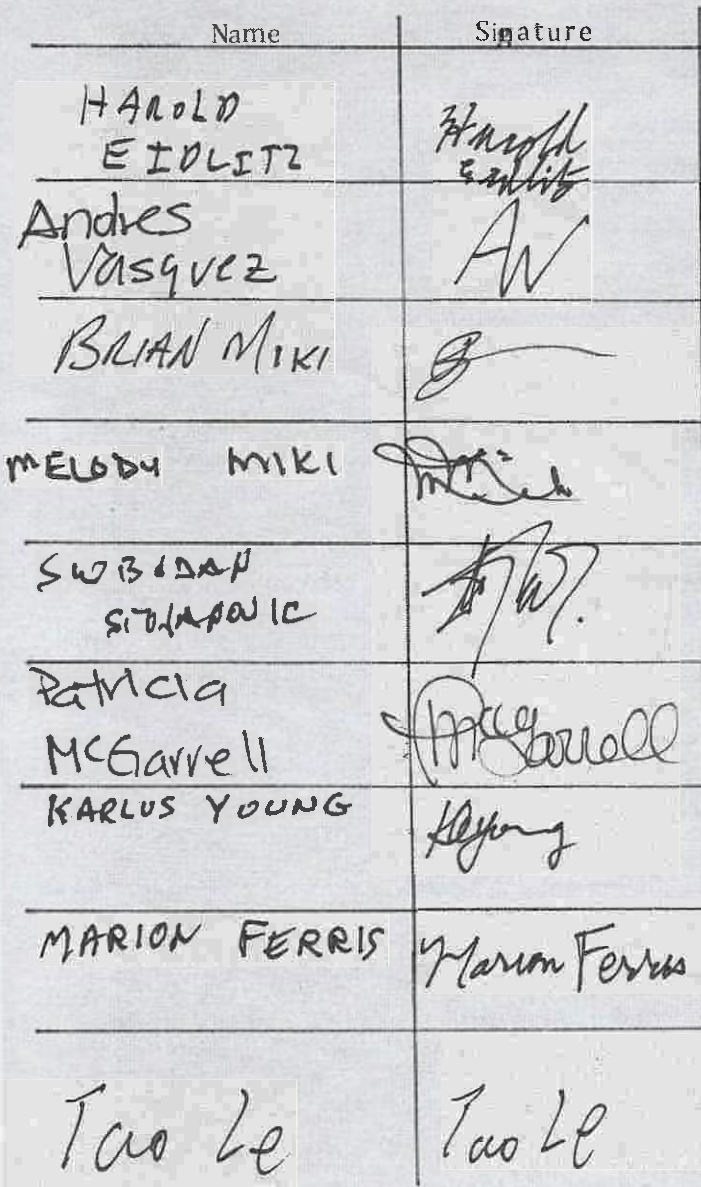 Name Signature
HAROLD
EIDLITZ
Harold
Eidlitz
Andres
Vasquez
AV
BRIAN MIKI
MELODY MIKI
Patricia
McGarrell
McGarrell
KARLUS YOUNG
Kyoung
MARION FERRIS
Marion Ferris
Tao Le
Tao Le